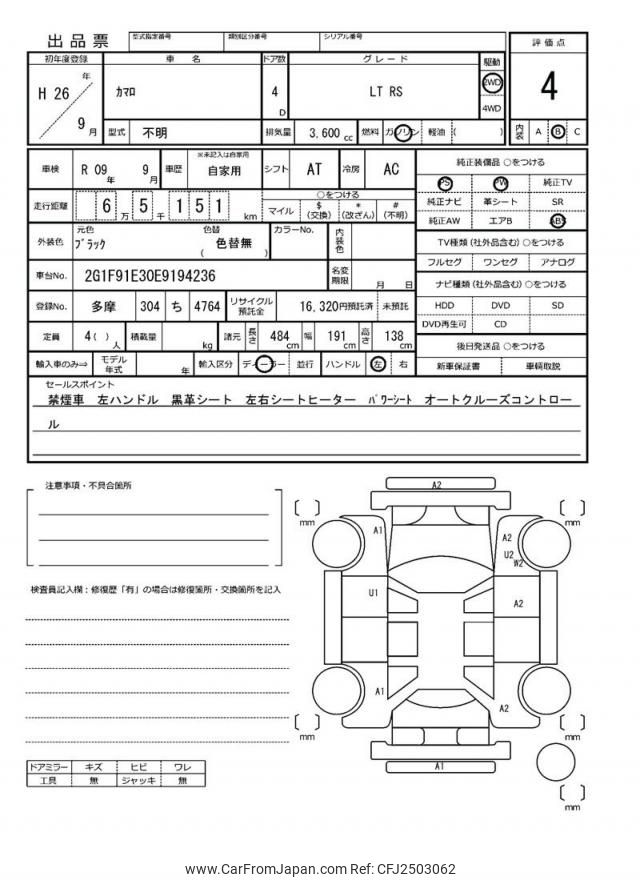 出品票
型式指定番号 類別区分番号 シリアル番号
初年度登録 車名 ドア数 グレード 駆動 評価点
H 26 年 9 月 カマロ 4 D LT RS 2WD 4WD 4
型式 不明 排気量 3,600 cc 燃料 ガソリン 軽油 ( ) 内装 A B C
車検 R 09 年 9 月 車歴 ※未記入は自家用 自家用 シフト AT 冷房 AC
純正装備品 ○をつける
PS PW 純正TV
純正ナビ 革シート SR
純正AW エアB ABS
走行距離 6 万 5 千 1 5 1 km ○をつける
マイル $ (交換) * (改ざん) # (不明)
外装色 元色 ブラック 色替 ( 色替無 ) カラーNo. 内装色
TV種類 (社外品含む) ○をつける
フルセグ ワンセグ アナログ
車台No. 2G1F91E30E9194236 名変期限 月 日
ナビ種類 (社外品含む) ○をつける
HDD DVD SD
DVD再生可 CD
登録No. 多摩 304 ち 4764 リサイクル預託金 16,320円預託済 未預託
定員 4 ( ) 人 積載量 kg 諸元 長さ 484 cm 幅 191 cm 高さ 138 cm
後日発送品 ○をつける
新車保証書 車輌取説
輸入車のみ⇒ モデル年式 年 輸入区分 ディーラー 並行 ハンドル 左 右
セールスポイント
禁煙車 左ハンドル 黒革シート 左右シートヒーター パワーシート オートクルーズコントロー
ル
注意事項・不具合箇所
検査員記入欄:修復歴「有」の場合は修復箇所・交換箇所を記入
A2
mm mm
A1 A2
U2
W2
U1 A2
A1 A2
mm mm
A1
mm
ドアミラー キズ ヒビ ワレ
工具 無 ジャッキ 無
www.CarFromJapan.com Ref: CFJ2503062